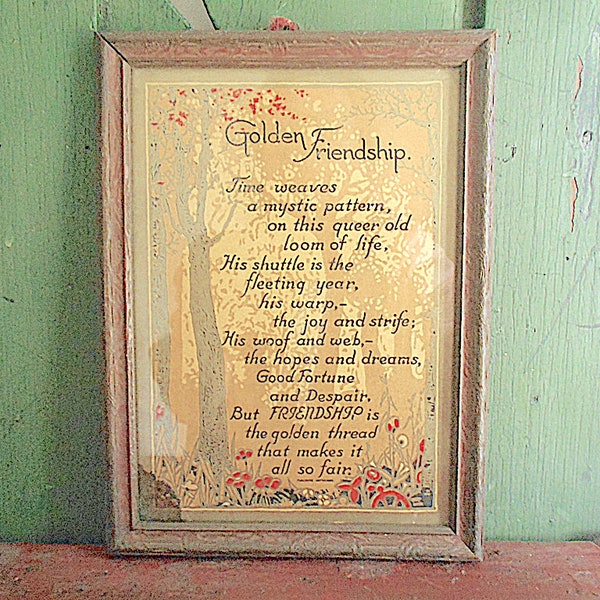 Golden Friendship.
Time weaves
a mystic pattern,
on this queer old
loom of life,
His shuttle is the
fleeting year,
his warp,-
the joy and strife;
His woof and web,-
the hopes and dreams,
Good Fortune
and Despair.
But FRIENDSHIP is
the golden thread
that makes it
all so fair.